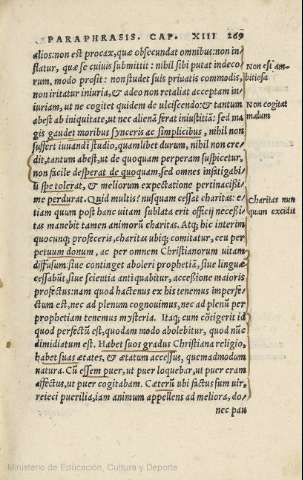 PARAPHRASIS. CAP. XIII 269
alios: non est procax, quæ obsecundat omnibus: non in-
flatur, quæ se cuiuis submittit: nihil sibi putat indeco-
rum, modo prosit: non studet suis priuatis commodis,
non irritatur iniuria, & adeo non retaliat acceptam in-
iuriam, ut ne cogitet quidem de ulciscendo: & tantum
abest ab iniquitate, ut nec alienã ferat iniustitiã: sed ma-
gis gaudet moribus synceris ac simplicibus, nihil non
suffert iuuandi studio, quamlibet durum, nihil non cre-
dit, tantum abest, ut de quoquam perperam suspicetur,
non facile desperat de quoquam. sed omnes insitigabi-
li spe tolerat, & meliorum expectatione pertinacissi-
me perdurat. Quid multis? nusquam cessat charitas: e-
tiam quum post hanc uitam sublata erit officij necessi-
tas manebit tamen animorũ charitas. Atq; hic interim
quocunq; profeceris, charitas ubiq; comitatur, ceu per
petuum donum, ac per omnem Christianorum uitam
diffusum: siue continget aboleri prophetiã, siue linguæ
cessabũt, siue scientia antiquabitur, accessione maioris
profectus: nam quod hactenus ex his tenemus imperfe-
ctum est, nec ad plenum cognouimus, nec ad plenũ per
prophetiam tenemus mysteria. Itaq; cum cõtigerit id
quod perfectũ est, quodam modo abolebitur, quod nũc
dimidiatum est. Habet suos gradus Christiana religio,
habet suas ætates, & ætatum accessus, quemadmodum
natura. Cũ essem puer, ut puer loquebar, ut puer eram
affectus, ut puer cogitabam. Caeterũ ubi factus sum uir,
reieci puerilia, iam animum appellens ad meliora, do-
nec pau
Non est am-
bitiosa
Non cogitat
malum
Charitas nun
quam excidit
Ministerio de Educación, Cultura y Deporte